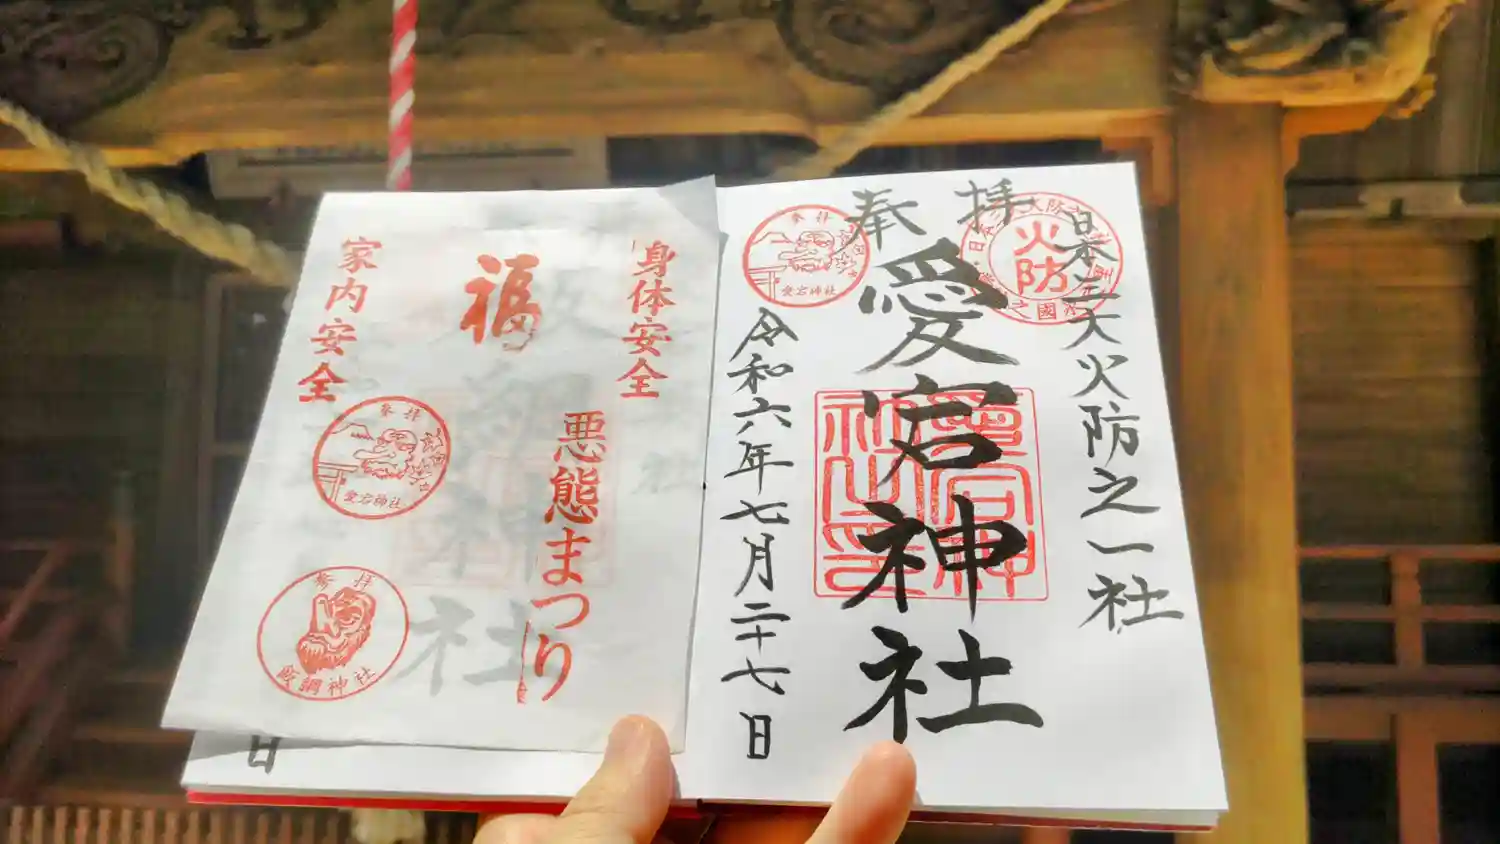 奉拝
日本三大火防之一社
愛宕神社
令和六年七月二十七日
火防
参拝
愛宕神社
愛宕神社之印
身体安全
福
悪態まつり
家内安全
参拝
愛宕神社
参拝
飯綱神社
社
日